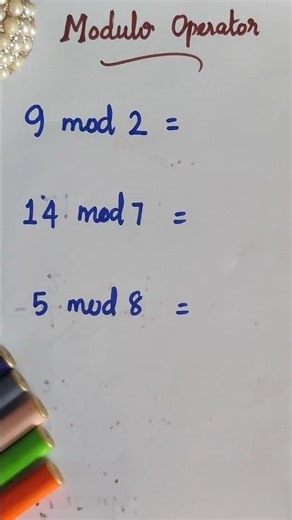 Modulo Operator
9 mod 2 =
14 mod 7 =
5 mod 8 =